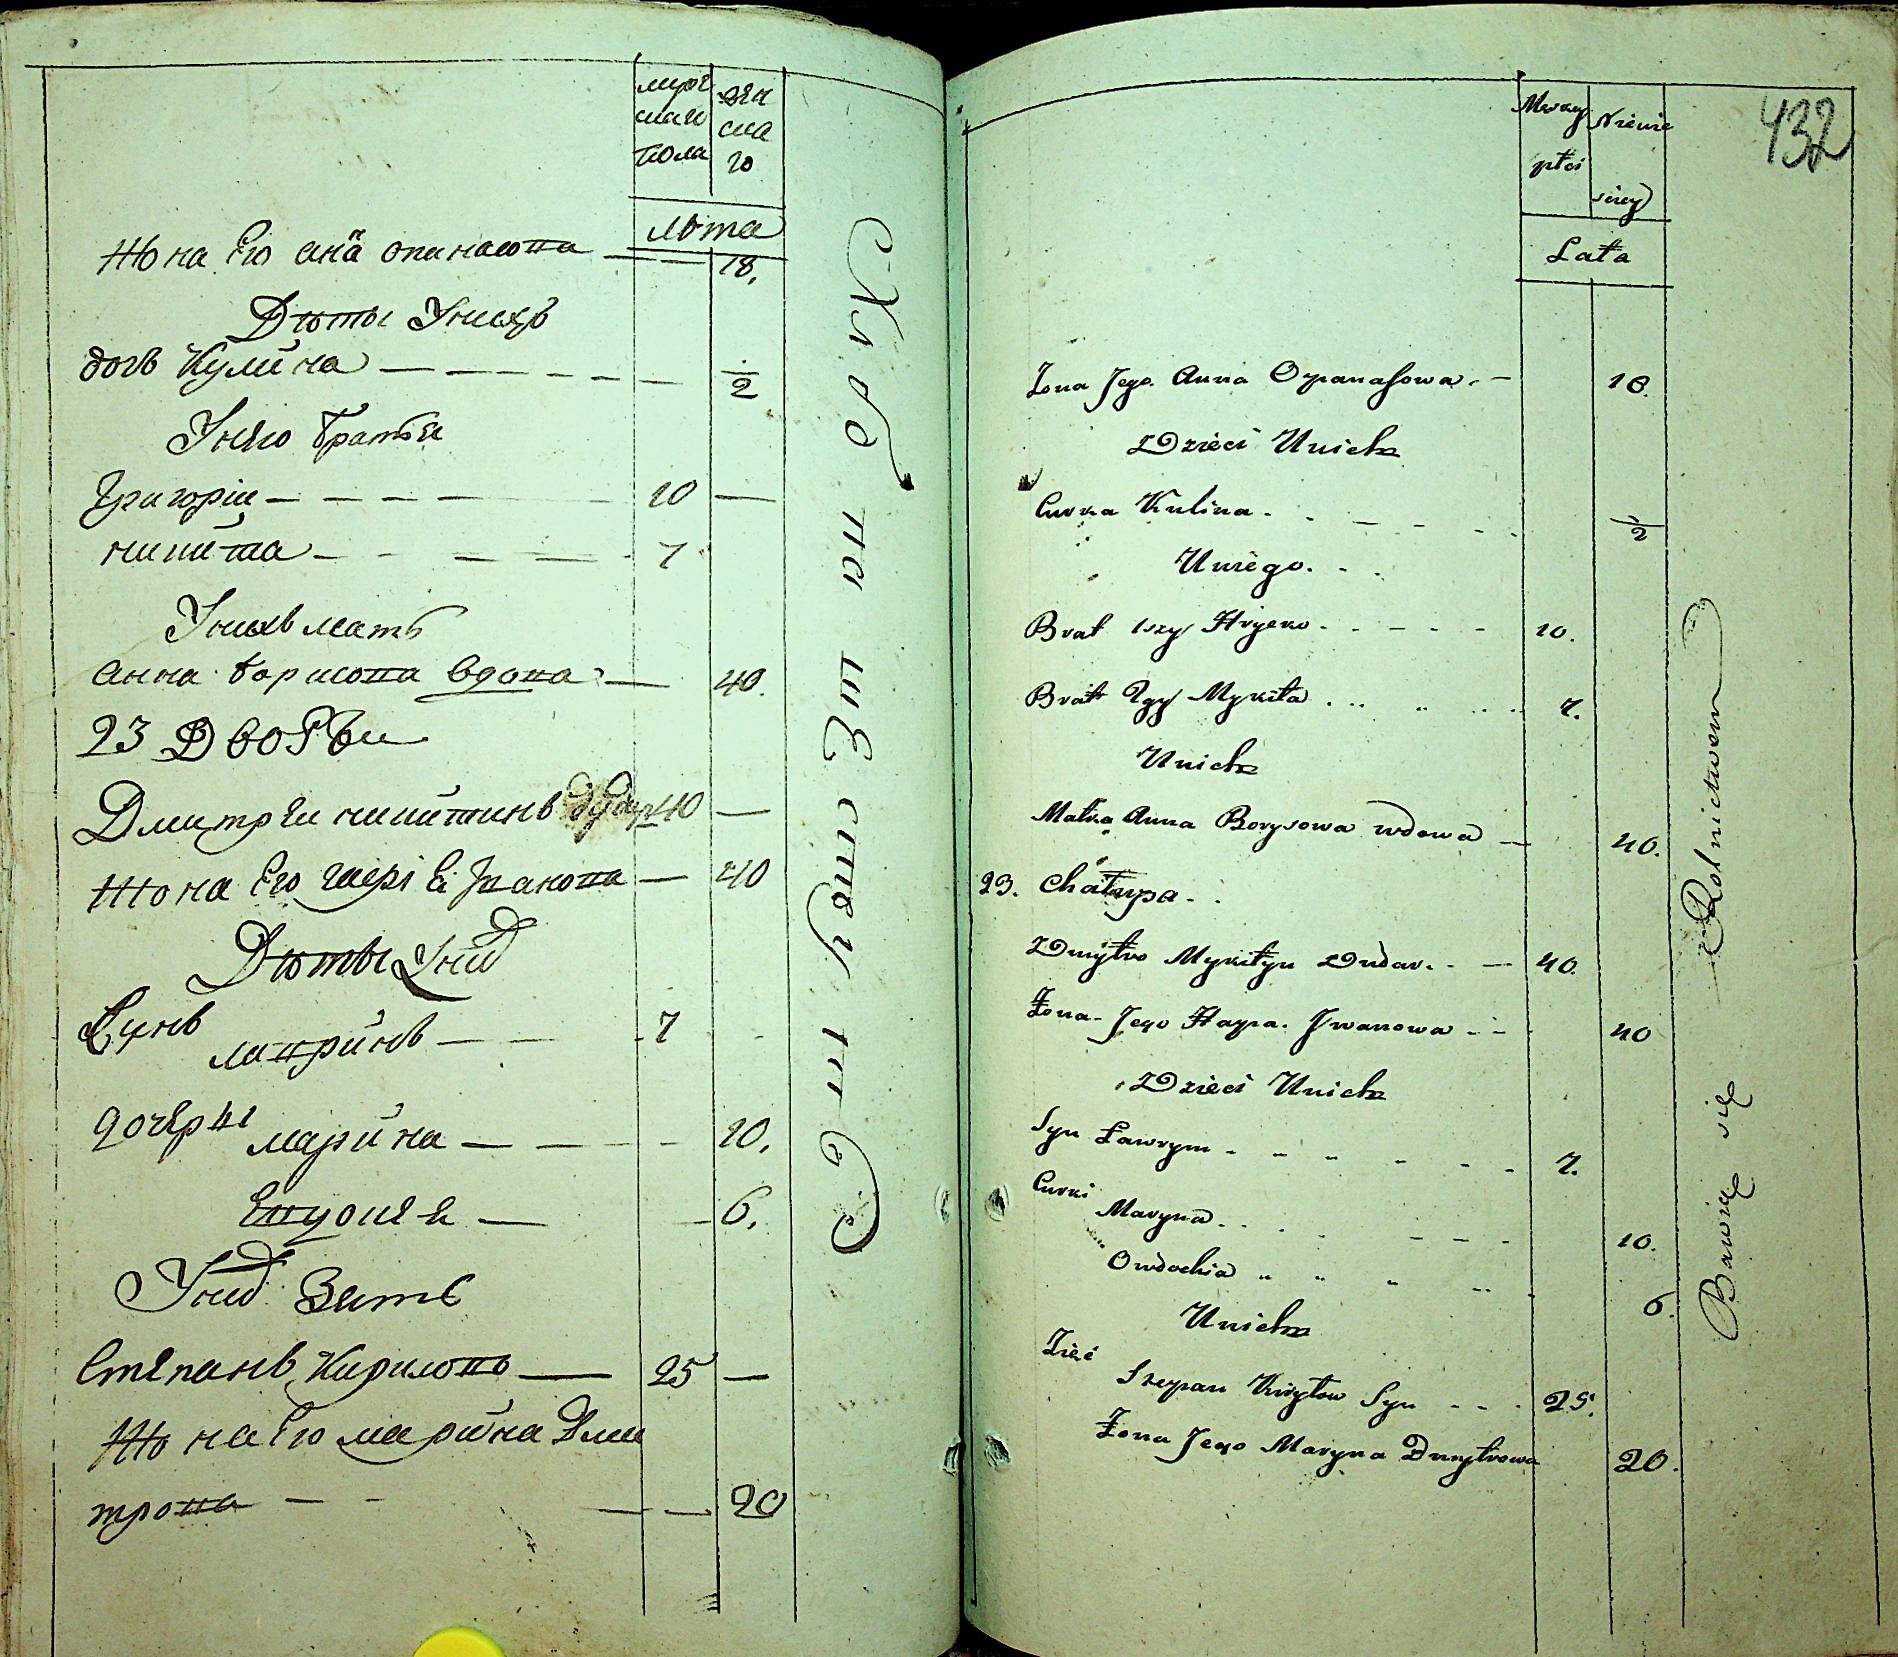 мужскаго пола
женскаго
лѣта
Жона Его анна опанасова — 18.
Дѣты Унихъ
дочъ Кулина — ½
Унего братья
Григоріи — 10 —
никита — 7
Унихъ мать
анна борисова вдова — 40.
23 Дворъ
Дмитреи никитинъ дударь 40 —
Жона Его гапрі Е Иванова — 40
Дѣты Унихъ
Сынъ
лавринъ — 7
дочеры
марина — 10.
Евдокия — 6.
Унихъ Зять
Степанъ Кириловъ — 25 —
Жона Его марина Дми
трова — 20
432
Męzkey płci
Niewie sciey
Lata
Zona Jego Anna Opanasowa. - 18.
Dzieci Unich
Curka Kulina. ½
Uniego.
Brat 1szy Hryćko 10.
Brat 2gy Mykita 7.
Unich
Matka Anna Borysowa wdowa — 40.
23. Chałupa.
Dmytro Mykityn Dudar. - 40.
Żona Jego Hapa. Iwanowa 40
Dzieci Unich
Syn Ławryn 7.
Curki
Maryna 10.
Owdochia 6.
Unich
Zięć
Stepan Kiryłow Syn 25.
Żona Jego Maryna Dmytrowa 20.
Bawię się Rolnictwem